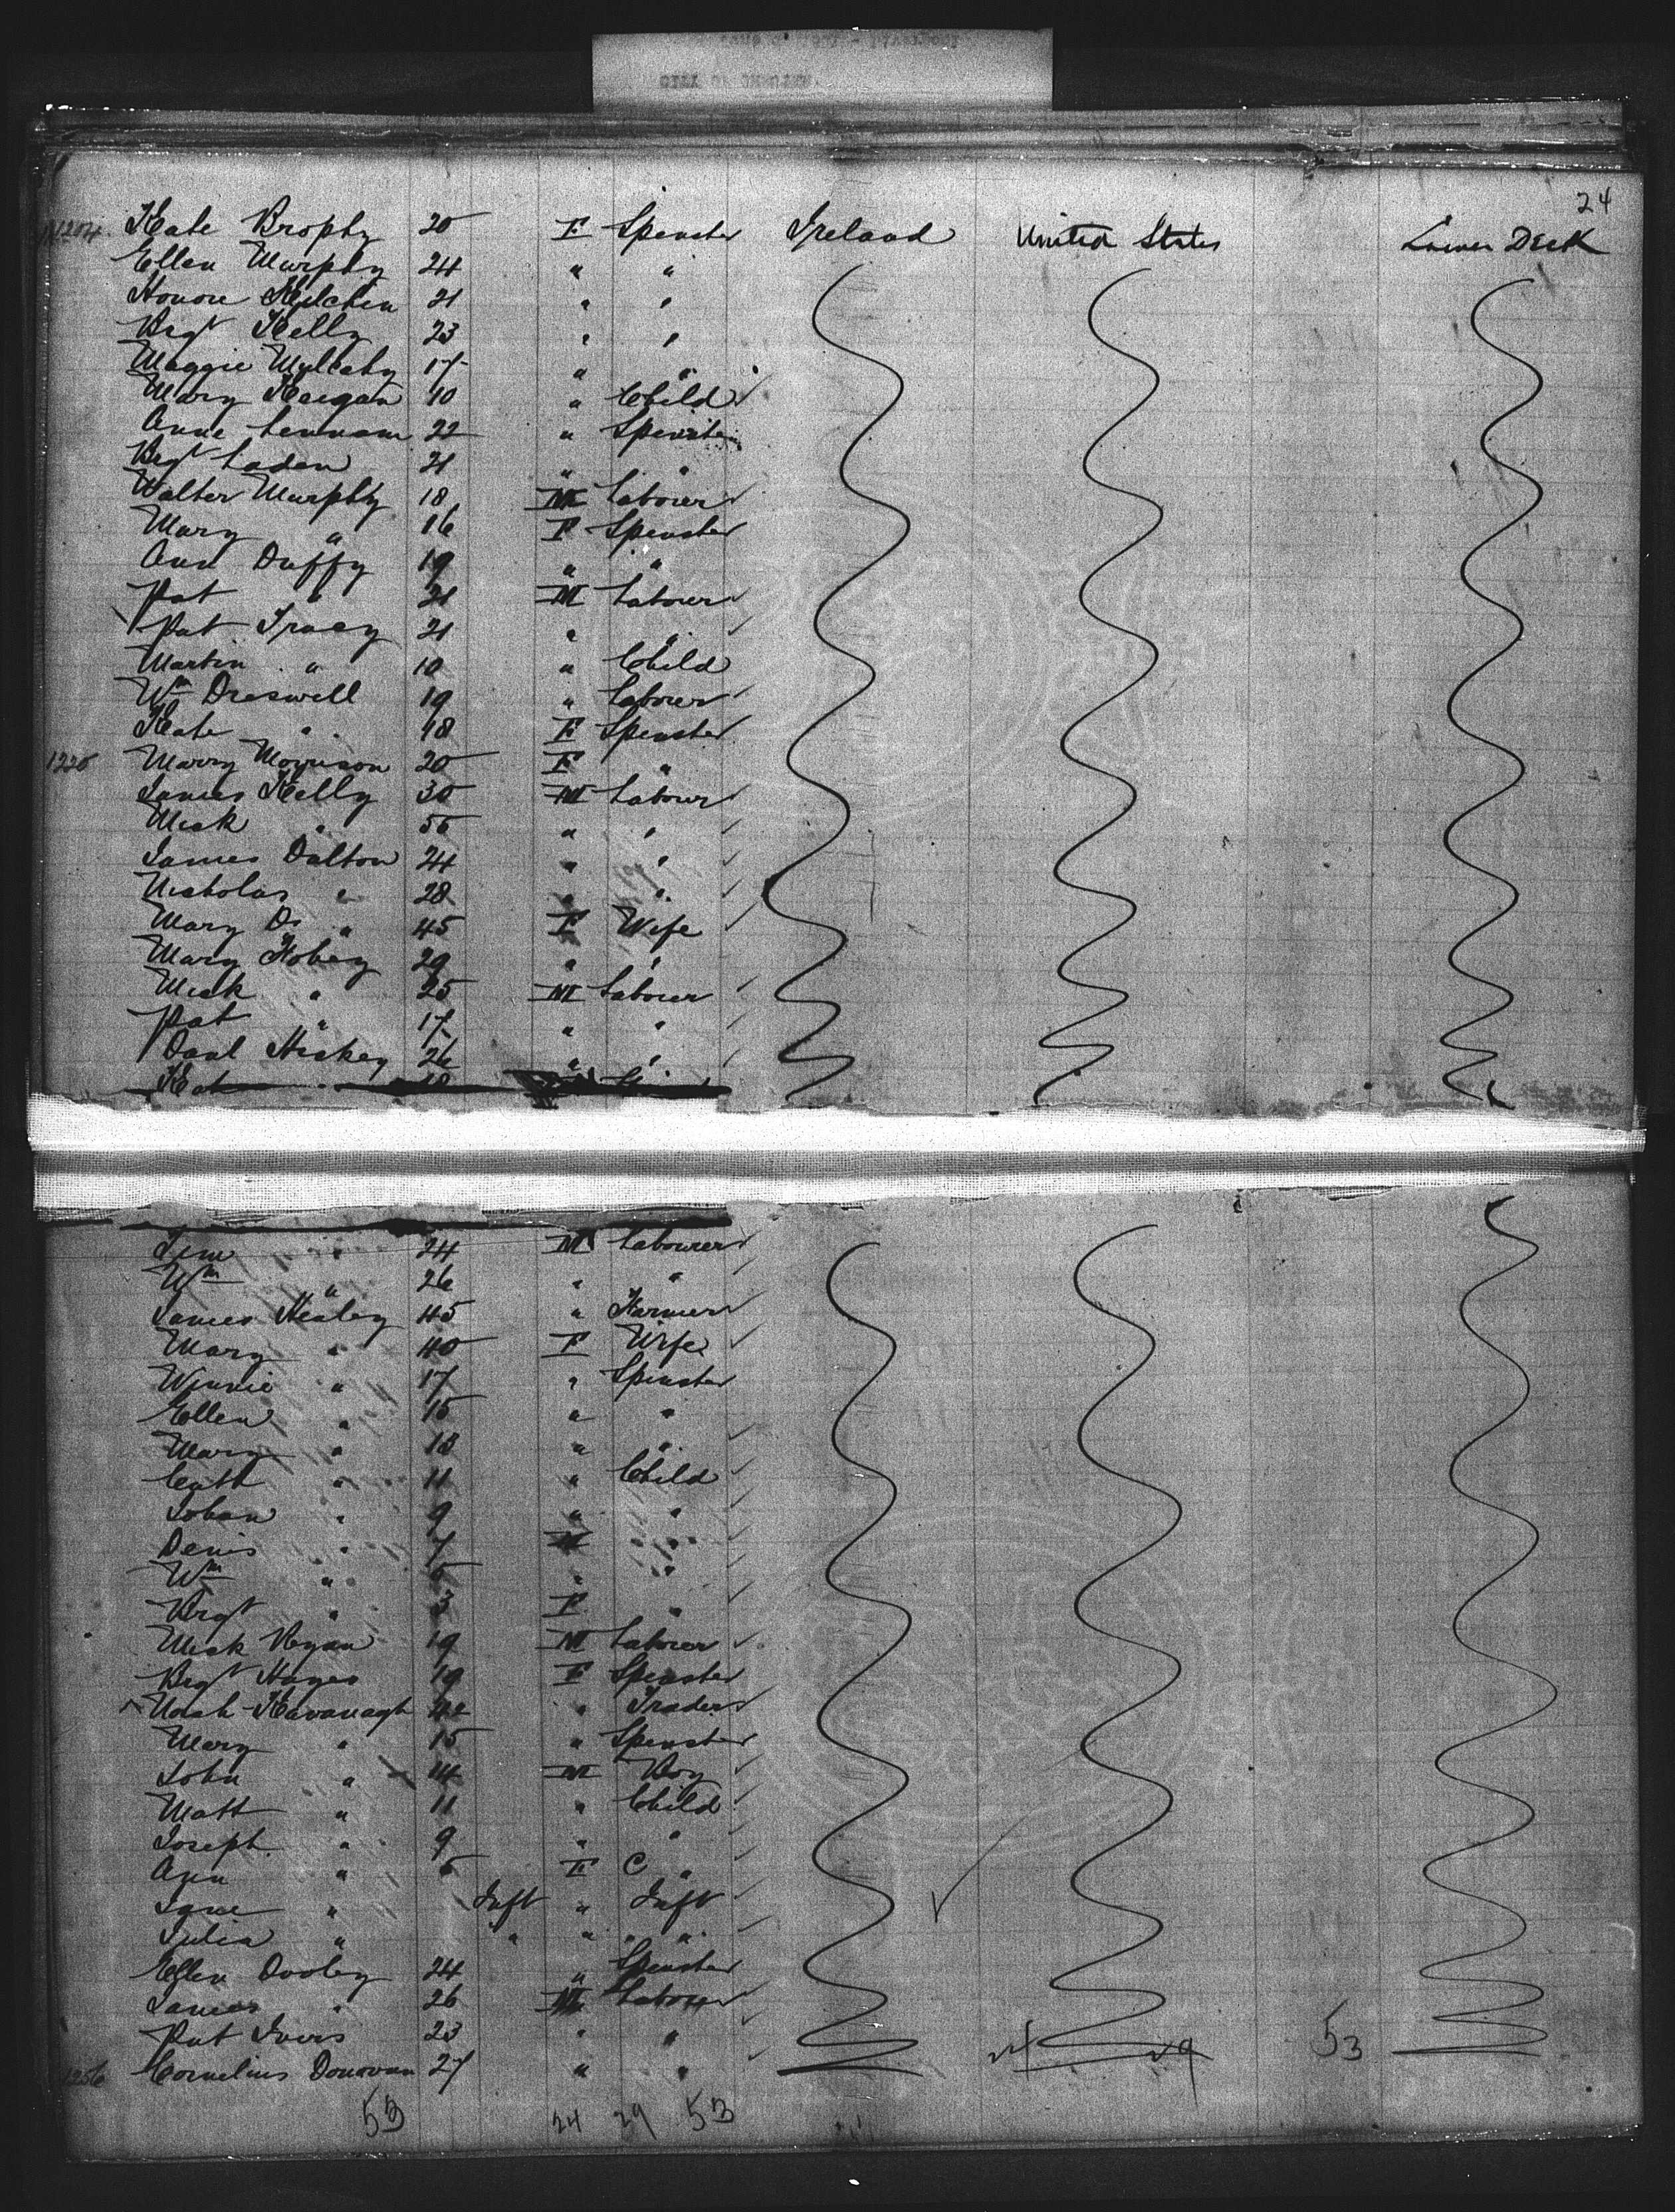 24
1204 Kate Brophy 20 F Spinster Ireland United States Lower Deck
Ellen Murphy 24 " "
Honore Kilchen 21 " "
Brgt Kelly 23 " "
Maggie Mulcahy 17 " "
Mary Keegan 10 " Child
Anne Lennam 22 " Spinster
Brgt Laden 21 " "
Walter Murphy 18 M Labourer
Mary " 16 F Spinster
Ann Duffy 19 " "
Pat " 21 M Labourer
Pat Tracy 21 " "
Martin " 10 " Child
Wm Draswell 19 " Labourer
Kate " 18 F Spinster
1220 Mary Morrison 20 F "
James Kelly 30 M Labour
Mick " 55 " "
James Dalton 24 " "
Nicholas " 28 " "
Mary D. " 45 F Wife
Mary Hobey 29 " "
Mick " 25 M Labourer
Pat " 17 " "
Danl Hickey 26 " "
Kate " 18
Jim " 24 M Labourer
Wm " 26 " "
James Healey 45 " Farmer
Mary " 40 F Wife
Winnie " 17 " Spinster
Ellen " 15 " "
Mary " 13 " "
Cath " 11 " Child
Johan " 9 " "
Denis " 7 M "
Wm " 5 " "
Brgt " 3 F "
Mick Ryan 19 M Labourer
Brgt Hayes 19 F Spinster
Kavanagh 42 " Traders
Mary " 15 " Spinster
John " 14 M Boy
Matt " 11 " Child
Joseph " 9 " "
Ann " 5 F C "
Jane " Inft " Inft
Julia " " " " "
Ellen Dooley 24 " Spinster
James " 26 M Labour
Pat Ivors 23 " " 53
1256 Cornelius Donovan 27 " "
53 24 29 53